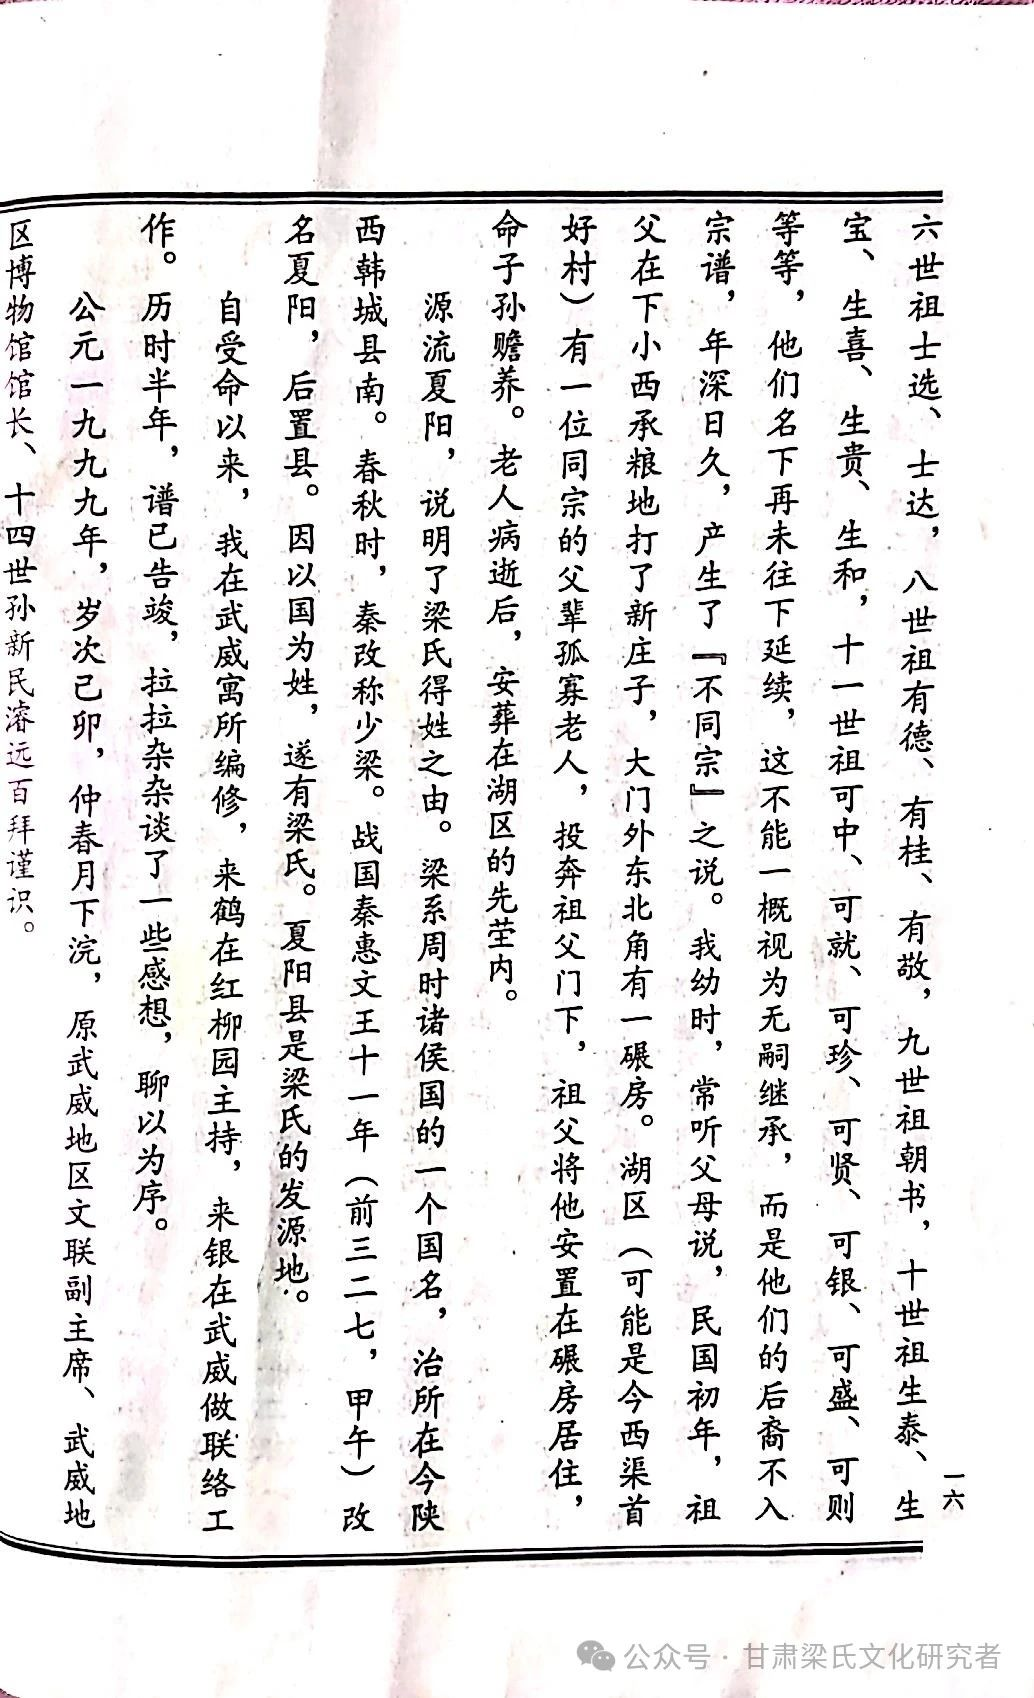 六世祖士选、士达，八世祖有德、有桂、有敬，九世祖朝书，十世祖生泰、生
宝、生喜、生贵、生和，十一世祖可中、可就、可珍、可贤、可银、可盛、可则
等等，他们名下再未往下延续，这不能一概视为无嗣继承，而是他们的后裔不入
宗谱，年深日久，产生了『不同宗』之说。我幼时，常听父母说，民国初年，祖
父在下小西承粮地打了新庄子，大门外东北角有一碾房。湖区（可能是今西渠首
好村）有一位同宗的父辈孤寡老人，投奔祖父门下，祖父将他安置在碾房居住，
命子孙赡养。老人病逝后，安葬在湖区的先茔内。
源流夏阳，说明了梁氏得姓之由。梁系周时诸侯国的一个国名，治所在今陕
西韩城县南。春秋时，秦改称少梁。战国秦惠文王十一年（前三二七，甲午）改
名夏阳，后置县。因以国为姓，遂有梁氏。夏阳县是梁氏的发源地。
自受命以来，我在武威寓所编修，来鹤在红柳园主持，来银在武威做联络工
作。历时半年，谱已告竣，拉拉杂杂谈了一些感想，聊以为序。
公元一九九九年，岁次己卯，仲春月下浣，原武威地区文联副主席、武威地
区博物馆馆长、十四世孙新民濬远百拜谨识。
一六
公众号 · 甘肃梁氏文化研究者